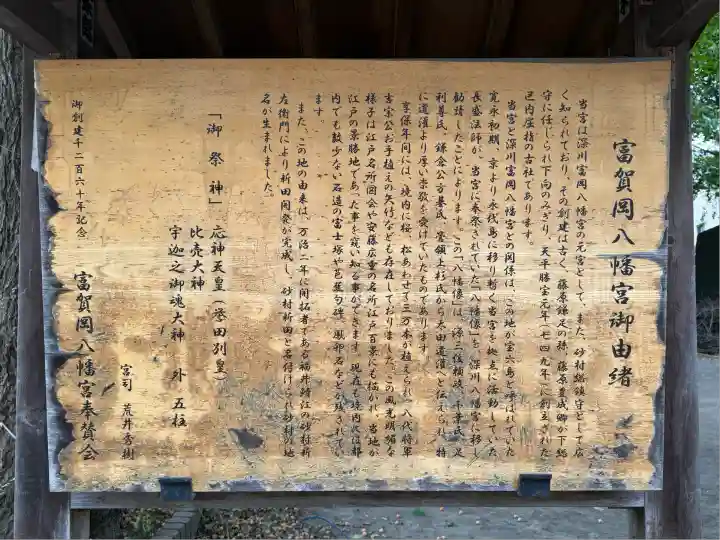 富賀岡八幡宮御由緒
当宮は深川富岡八幡宮の元宮として、また、砂村総鎮守として広
く知られており、その創建は古く、藤原鎌足の孫、藤原豊成卿が下総
守に任じられ下向のみぎり、天平勝宝元年(七四九年)に創立された
区内屈指の古社であります。
当宮と深川富岡八幡宮との関係は、この地が宝六島と呼ばれていた
寛永初期、京より永代島に移り暫く当宮を拠点に活動していた
長盛法師が、当宮に奉祭されていた「八幡像」を、深川八幡宮に移し
勧請したことによります。この「八幡像」は、源三位頼政、千葉氏、足
利尊氏、鎌倉公方基氏、管領上杉氏から太田道灌へと伝えられ、特
に道灌より厚い崇敬を受けていたものであります。
享保年間には、境内に桜、松あわせて三万本が植えられ、八代将軍
吉宗公お手植えの矢竹なども存在しておりました。この風光明媚な
様子は江戸名所図会や安藤広重の名所江戸百景にも描かれ、当地が
江戸の景勝地であった事を窺い知る事ができます。現在も境内には都
内でも数少ない石造の富士塚や芭蕉句碑、風邪石などが残されてい
ます。
また、この地の由来は、万治二年に開拓者である福井靖江の砂村新
左衛門により新田開発が完成し、砂村新田と名付けられ砂村の地
名が生まれました。
「御祭神」 応神天皇(誉田別皇)
比売大神
宇迦之御魂大神 外 五柱
宮司 荒井秀樹
富賀岡八幡宮奉賛会
御創建千二百六十年記念